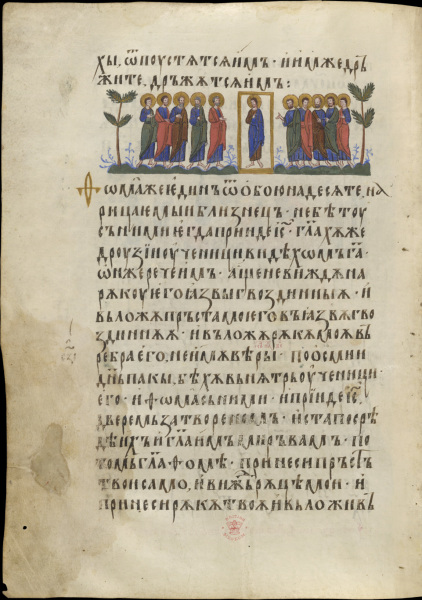 хы, ѿпоустѧтсѧ имъ· и имже дръ
жите, дръжѧтсѧ имъ:
Ѳѡма же единъ ѿ обоюнадесѧте, на
рицаемыи близнецъ· не бѣ тоу
съ ними егда прииде і҃с· гл҃ахѫ же
дроузіи оученици видѣхѡмъ г҃а·
ѡн же рече имъ· аще не виждѫ на
рѫкоу его ꙗзвы гвоздинныѫ· и
въложѫ пръста моего въ ꙗзвѫ гво
здинѫѫ· и въложѫ рѫкѫ моѫ въ
ребра его, не имѫ вѣры· по осми
днь пакы, бѣхѫ вънѫтрь оученици
его· и ѳѡма съ ними· и прииде і҃с
двѣремъ затвореномъ· и ста посрѣ
дѣ ихъ и гл҃а имъ миръ вамъ· по
томъ гл҃а ѳомѣ· принеси пръстъ
твои сѣмо, и виждь рѫцѣ мои· и
принеси рѫкѫ твоѫ и въложи въ